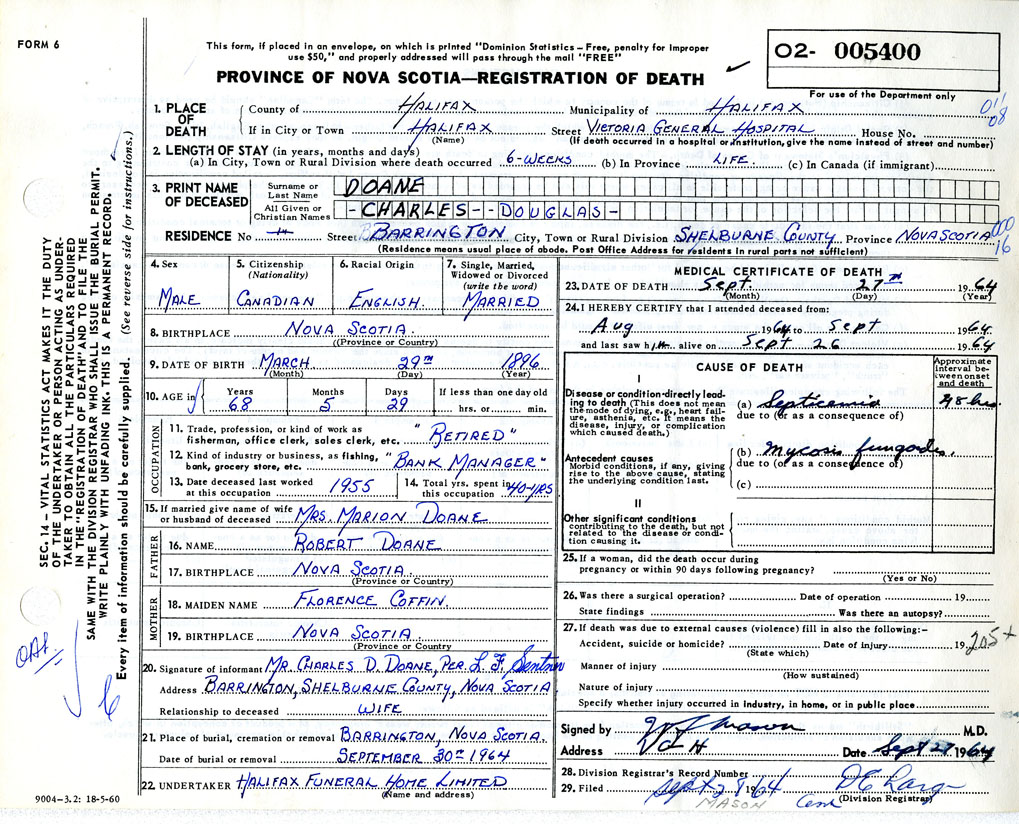 FORM 6
This form, if placed in an envelope, on which is printed "Dominion Statistics – Free, penalty for improper
use $50," and properly addressed will pass through the mail "FREE"
PROVINCE OF NOVA SCOTIA—REGISTRATION OF DEATH
02- 005400
For use of the Department only
011
08
1. PLACE OF DEATH
County of HALIFAX Municipality of HALIFAX
If in City or Town HALIFAX Street VICTORIA GENERAL HOSPITAL House No.
(Name) (If death occurred in a hospital or institution, give the name instead of street and number)
2. LENGTH OF STAY (in years, months and days)
(a) In City, Town or Rural Division where death occurred 6-WEEKS (b) In Province LIFE. (c) In Canada (if immigrant)
3. PRINT NAME OF DECEASED
Surname or Last Name DOANE
All Given or Christian Names -CHARLES--DOUGLAS-
RESIDENCE No Street BARRINGTON City, Town or Rural Division SHELBURNE COUNTY Province NOVA SCOTIA
(Residence means usual place of abode. Post Office Address for residents in rural parts not sufficient)
000
16
4. Sex
MALE
5. Citizenship (Nationality)
CANADIAN
6. Racial Origin
ENGLISH.
7. Single, Married, Widowed or Divorced (write the word)
MARRIED
8. BIRTHPLACE NOVA SCOTIA.
(Province or Country)
9. DATE OF BIRTH MARCH 29TH 1896
(Month) (Day) (Year)
10. AGE in
Years Months Days If less than one day old
68 5 29 hrs. or min.
OCCUPATION
11. Trade, profession, or kind of work as
fisherman, office clerk, sales clerk, etc. "RETIRED"
12. Kind of industry or business, as fishing,
bank, grocery store, etc. "BANK MANAGER"
13. Date deceased last worked
at this occupation 1955
14. Total yrs. spent in
this occupation 40-YRS
15. If married give name of wife
or husband of deceased MRS. MARION DOANE
FATHER
16. NAME ROBERT DOANE
17. BIRTHPLACE NOVA SCOTIA.
(Province or Country)
MOTHER
18. MAIDEN NAME FLORENCE COFFIN.
19. BIRTHPLACE NOVA SCOTIA
(Province or Country)
20. Signature of informant MR. CHARLES D. DOANE, PER. L. F.
Address BARRINGTON, SHELBURNE COUNTY, NOVA SCOTIA
Relationship to deceased WIFE
21. Place of burial, cremation or removal BARRINGTON, NOVA SCOTIA.
Date of burial or removal SEPTEMBER 30TH 1964
22. UNDERTAKER HALIFAX FUNERAL HOME LIMITED
(Name and address)
MEDICAL CERTIFICATE OF DEATH
23. DATE OF DEATH Sept. 27th 1964
(Month) (Day) (Year)
24. I HEREBY CERTIFY that I attended deceased from:
Aug 1964 to Sept 1964
and last saw him alive on Sept 26 1964
CAUSE OF DEATH
Approximate interval between onset and death
I
Disease or condition directly leading to death (This does not mean the mode of dying, e.g., heart failure, asthenia, etc. It means the disease, injury, or complication which caused death.)
(a) Septicemia 48 hrs.
due to (or as a consequence of)
Antecedent causes
Morbid conditions, if any, giving rise to the above cause, stating the underlying condition last.
(b) Mycosis fungoides.
due to (or as a consequence of)
(c)
II
Other significant conditions
contributing to the death, but not related to the disease or condition causing it.
25. If a woman, did the death occur during
pregnancy or within 90 days following pregnancy?
(Yes or No)
26. Was there a surgical operation? Date of operation 19
State findings Was there an autopsy?
27. If death was due to external causes (violence) fill in also the following:–
Accident, suicide or homicide? Date of injury 19
(State which)
205+
Manner of injury
(How sustained)
Nature of injury
Specify whether injury occurred in industry, in home, or in public place
Signed by Mason M.D.
Address V G H Date Sept 27 1964
28. Division Registrar's Record Number
29. Filed Sept 28 1964
(Division Registrar)
MASON
SEC. 14 – VITAL STATISTICS ACT MAKES IT THE DUTY
OF THE UNDERTAKER OR PERSON ACTING AS UNDER-
TAKER TO OBTAIN ALL THE PARTICULARS REQUIRED
IN THE "REGISTRATION OF DEATH" AND TO FILE THE
SAME WITH THE DIVISION REGISTRAR WHO SHALL ISSUE THE BURIAL PERMIT.
WRITE PLAINLY WITH UNFADING INK. THIS IS A PERMANENT RECORD.
Every item of information should be carefully supplied. (See reverse side for instructions.)
9004-3.2: 18-5-60